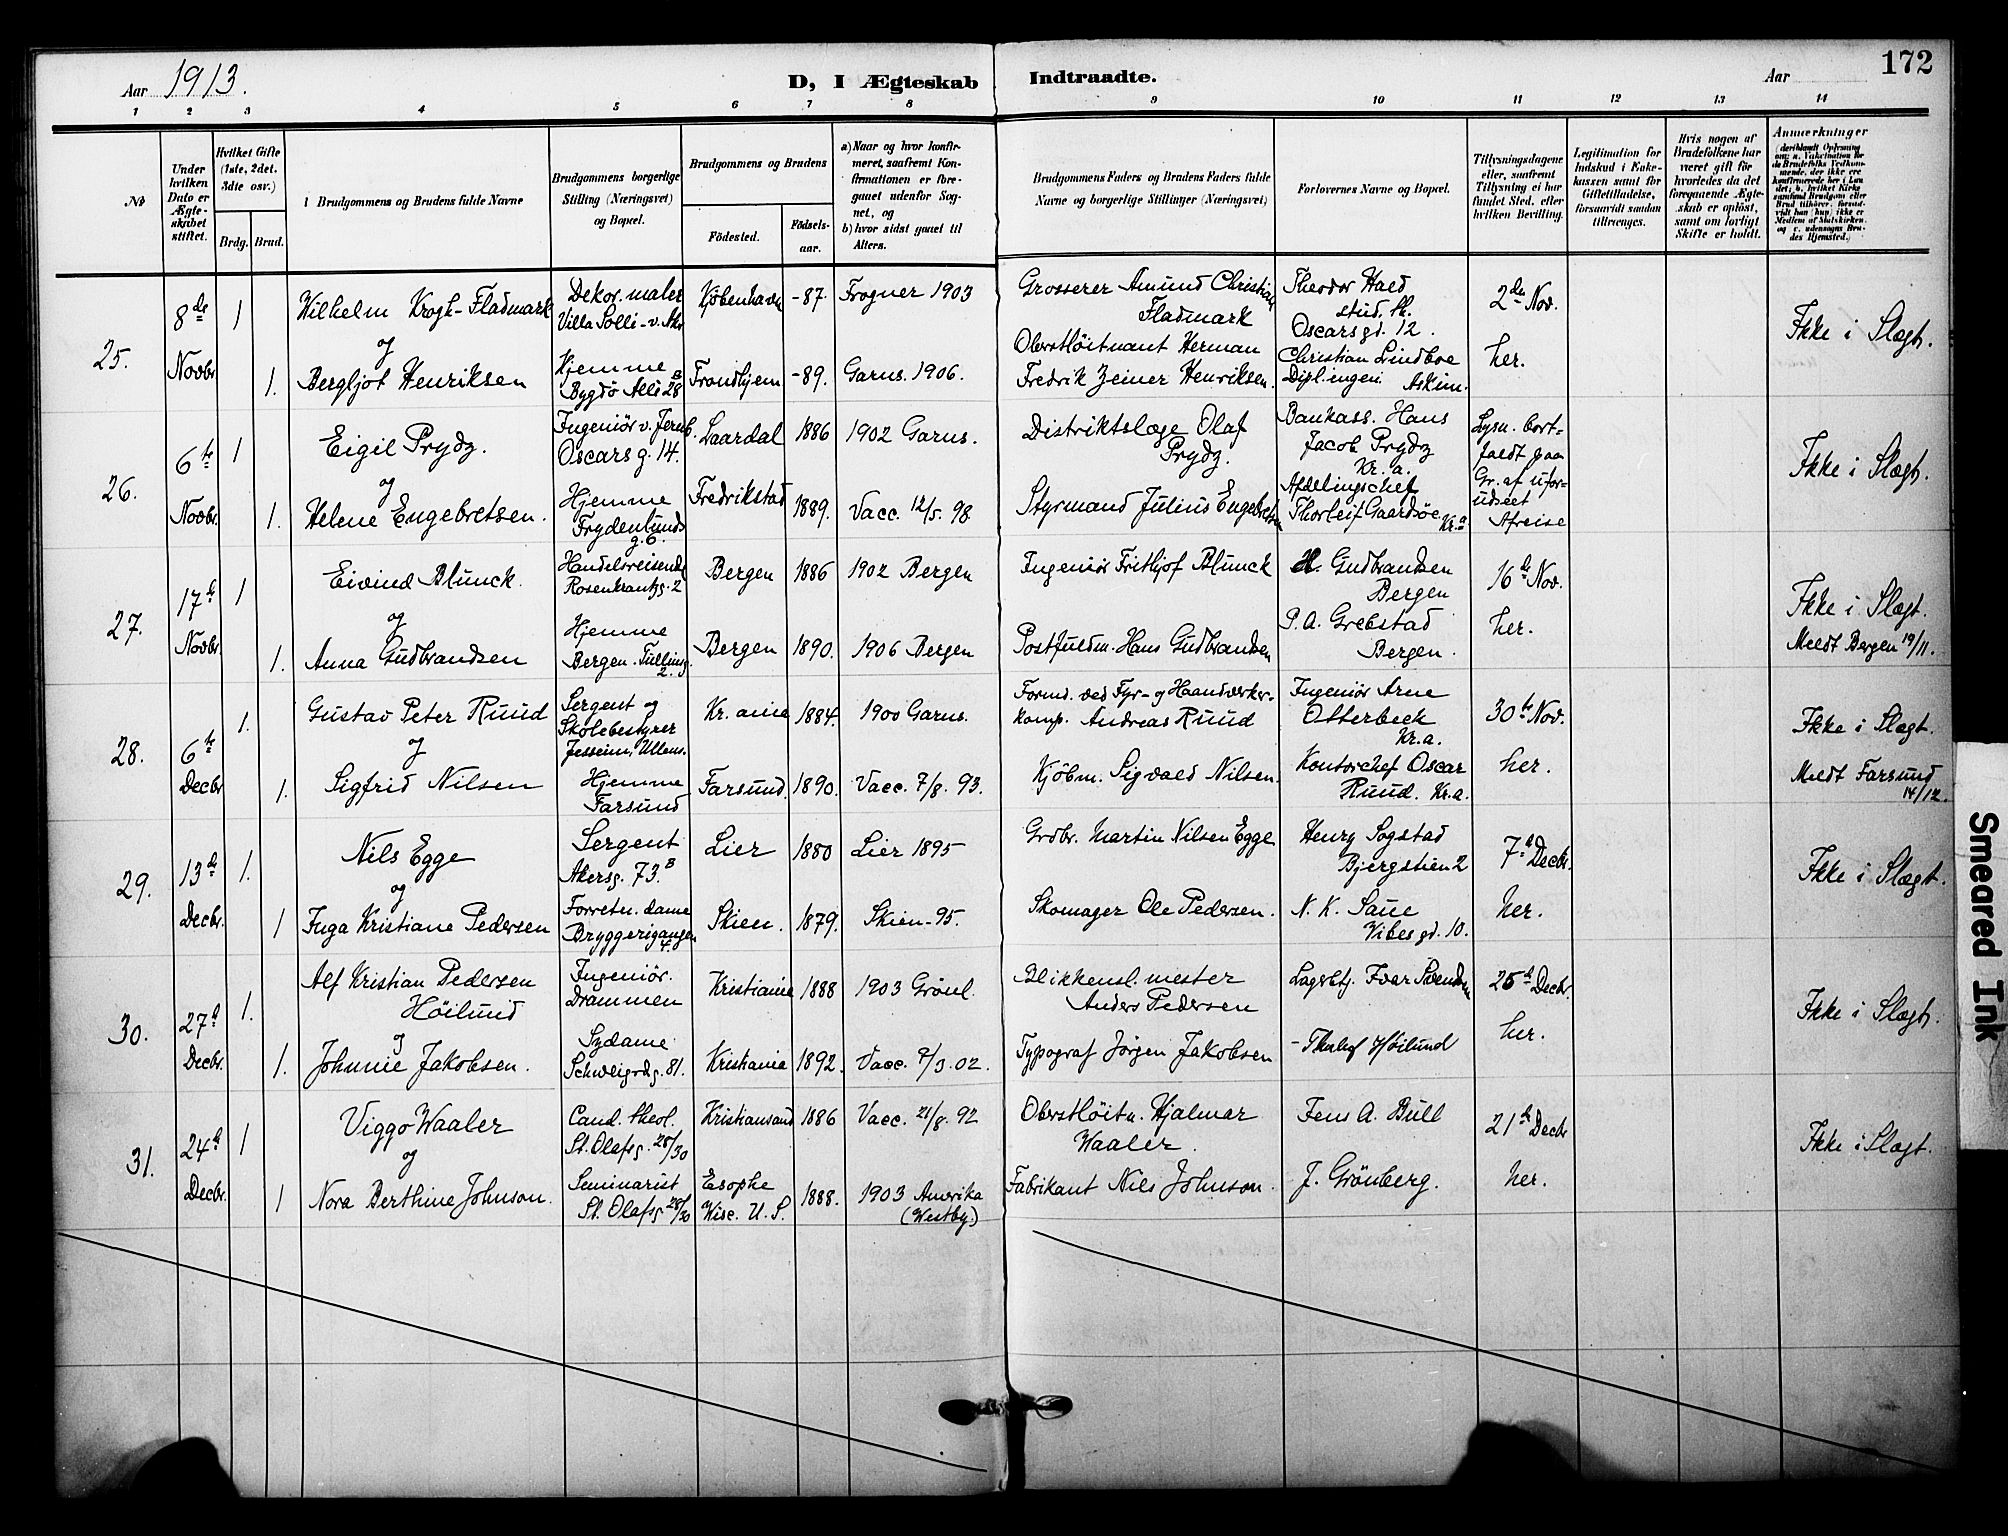 Aar 1913.
D, I Ægteskab Indtraadte.
Aar
172
1 2 3 4 5 6 7 8 9 10 11 12 13 14
No
Under hvilken Dato er Ægteskabet stiftet.
Hvilket Gifte (1ste, 2det, 3die osv.)
Brdg. Brud.
Brudgommens og Brudens fulde Navne
Brudgommens borgerlige Stilling (Næringsvei) og Bopæl.
Brudgommens og Brudens
Fødested.
Fødselsaar.
a) Naar og hvor konfirmeret, saafremt Konfirmationen er foregaaet udenfor Sognet, og
b) hvor sidst gaaet til Alters.
Brudgommens Faders og Brudens Faders fulde Navne og borgerlige Stillinger (Næringsvei)
Forlovernes Navne og Bopæl.
Tillysningsdagene eller, saafremt Tillysning ei har fundet Sted, efter hvilken Bevilling.
Legitimation for Indskud i Enkekassen samt for Giftetilladelse, forsaavidt saadan tiltrænges.
Hvis nogen af Brudefolkene har været gift før hvorledes da det foregaaende Ægteskab er opløst, samt om lovligt Skifte er holdt.
Anmerkninger
25.
8de Novbr.
1
Wilhelm Krogh-Fladmark
og
1. Bergljot Henriksen
Dekor. maler
Villa Solli - v. Akr
Hjemme
Bygdö Allé 28 B
Kjøbenhavn -87. Frogner 1903
Trondhjem -89. Garns. 1906.
Grosserer Amund Christian
Fladmark
Oberstløitnant Herman
Fredrik Zeiner Henriksen.
Theodor Haed
stud. th.
Oscarsgd. 12.
Christian Lindboe
Dipl.ingeni. Askim.
2den Nov.
her.
Ikke i Slægt.
26.
6te Novbr.
1
Eigil Prydz.
og
1. Helene Engebretsen.
Ingeniör v. Jernb.
Oscars g. 14.
Hjemme
Frydenlunds
g. 6.
Laardal 1886 1902 Garns.
Fredrikstad 1889. Vacc. 12/5. 98
Distriktslæge Olaf
Prydz.
Styrmand Julius Engebretsen
Bankass. Hans
Jacob Prydz
Kr. a.
Afdelingschef
Thorleif Gaardsöe. Kr.a
Lysn. bort-
faldt paa
Gr. af ufor-
udseet
Afreise
Ikke i Slægt.
27.
17de Novbr
1
Eivind Blunck.
og
1. Anna Gudbrandsen
Handelsreisende
Rosenkrantzg. 2
Hjemme
Bergen. Tullinsg
2.
Bergen 1886 1902 Bergen
Bergen 1890. 1906 Bergen
Ingeniör Frithjof Blunck
Postfuldm. Hans Gudbrandsen
H. Gudbrandsen
Bergen
P. A. Grebstad
Bergen.
16de Nov.
her.
Ikke i Slægt.
Meldt Bergen 19/11.
28.
6te Decbr
1.
Gustav Peter Ruud
og
1. Sigfrid Nilsen
Sergent og
Skolebestyrer
Jessheim, Ullens.
Hjemme
Farsund
Kr. ania 1884. 1900 Garns.
Farsund. 1890. Vacc. 7/8. 93.
Formd. ved Fyr- og Haandverker-
komp. Andreas Ruud
Kjøbm. Sigvald Nilsen.
Ingeniör Arne
Otterbeck
Kr.a.
Kontorchef Oscar
Ruud. Kr.a.
30te Nov.
her.
Ikke i Slægt.
Meldt Farsund
14/12.
29.
13de Decbr.
1.
Nils Egge
og
1 Inga Kristiane Pedersen
Sergent
Akersg. 73.B
Forretn. dame
Bryggerigangen
4.
Lier 1880 Lier 1895
Skien. 1879. Skien -95.
Grdbr. Martin Nilsen Egge
Skomager Ole Pedersen.
Henry Sogstad
Bjergstien 2
N. K. Saue
Vibesgd. 10.
7de Decbr.
her.
Ikke i Slægt.
30.
27de Decbr.
1.
Alf Kristian Pedersen
Höilund
og
1. Johnnie Jakobsen.
Ingeniör.
Drammen
Sydame
Schweigrdsg. 81.
Kristiania 1888 1903 Grönl.
Kristiania 1892. Vacc. 9/3. 02.
Blikkensl. mester
Anders Pedersen
Typograf Jörgen Jakobsen
Lagerbtj. Ivar Svendsen
- Thoralf Höilund
25de Decbr.
her.
Ikke i Slægt.
31.
24de Decbr.
1
Viggo Waaler
og
1 Nora Berthine Johnson.
Cand. theol.
St. Olafsg. 28/30
Seminarist
St. Olafsg 28/30
Kristiansand 1886 Vacc. 21/8. 92
Esophe
Wisc. U. S. 1888. 1903 Amerika
(Westby)
Oberstløitn. Hjalmar
Waaler.
Fabrikant Nils Johnson.
Jens A. Bull
J. Grönberg.
21de Decbr
her.
Ikke i Slægt.
Smeared Ink